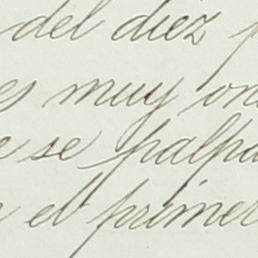 del diez
es muy on
e se palpa
el primer